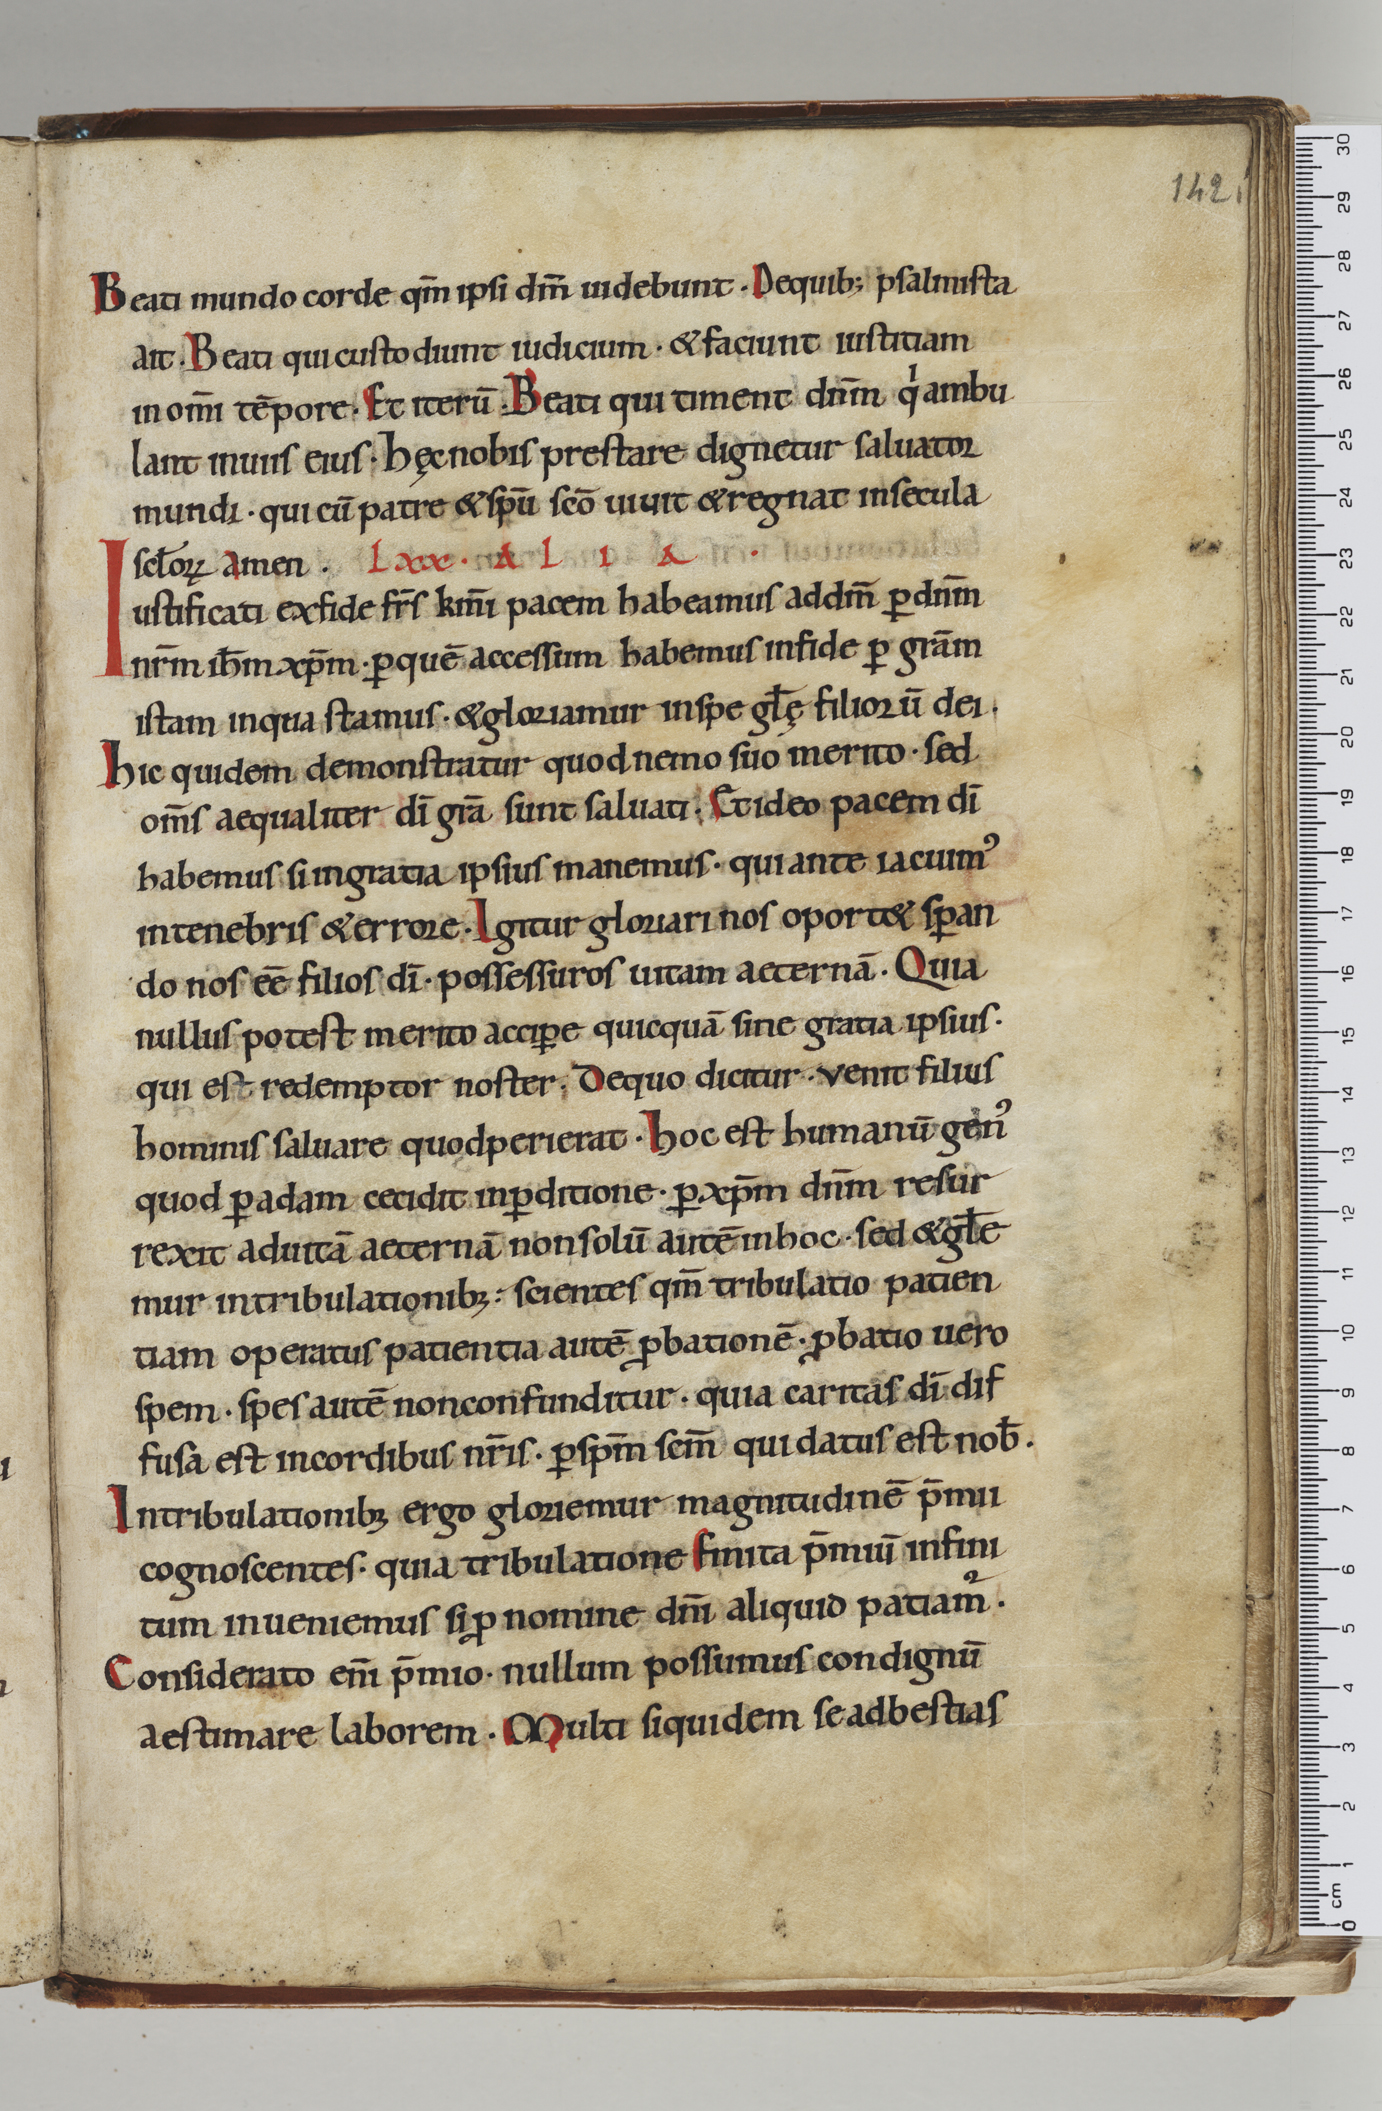 142
Beati mundo corde qm̄ ipsi dm̄ uidebunt. Dequib; psalmista
ait. Beati qui custodiunt iudicium. & faciunt iustitiam
in om̄i tēpore. Et iterū. Beati qui timent dn̄m q̇ ambu
lant inuiis eius. hęc nobis prestare dignetur saluator
mundi. qui cū patre & sp̄u sc̄o uiuit & regnat insecula
scl̄oꝝ amen. Lxx. A L I A.
Iustificati exfide fr̄s km̄i pacem habeamus addm̄ ꝑ dn̄m
nr̄m ih̄m xp̄m. ꝑ quē accessum habemus infide ꝑ grām
istam inqua stamus. & gloriamur inspe gl̄ę filiorū dei.
hic quidem demonstratur quod nemo suo merito. sed
om̄s aequaliter dī grā sunt saluati. Et ideo pacem dī
habemus si ingratia ipsius manemus. qui ante iacuimꝰ
intenebris & errore. Igitur gloriari nos oport& sꝑan
do nos eē filios dī. possessuros uitam aeternā. Quia
nullus potest merito acciꝑe quicquā sine gratia ipsius.
qui est redemptor noster. Dequo dicitur. venit filius
hominis saluare quod perierat. hoc est humanū genꝰ
quod ꝑ adam cecidit inꝑditione. ꝑ xp̄m dn̄m resur
rexit aduitā aeternā non solū autē inhoc. sed & gl̄e
mur intribulationibꝫ: scientes qm̄ tribulatio patien
tiam operatus patientia autē ꝓbationē. ꝓbatio uero
spem. spes autē nonconfunditur. quia caritas dī dif
fusa est incordibus nr̄is. ꝑ sp̄m sc̄m qui datus est nob̄.
Intribulationibꝫ ergo gloriemur magnitudinē p̄mii
cognoscentes. quia tribulatione finita p̄miū infini
tum inueniemus si ꝓ nomine dn̄i aliquid patiam̄.
Considerato eni̅ p̄mio. nullum possumus condignū
aestimare laborem. Multi siquidem se adbestias
30
29
28
27
26
25
24
23
22
21
20
19
18
17
16
15
14
13
12
11
10
9
8
7
6
5
4
3
2
1
cm
0